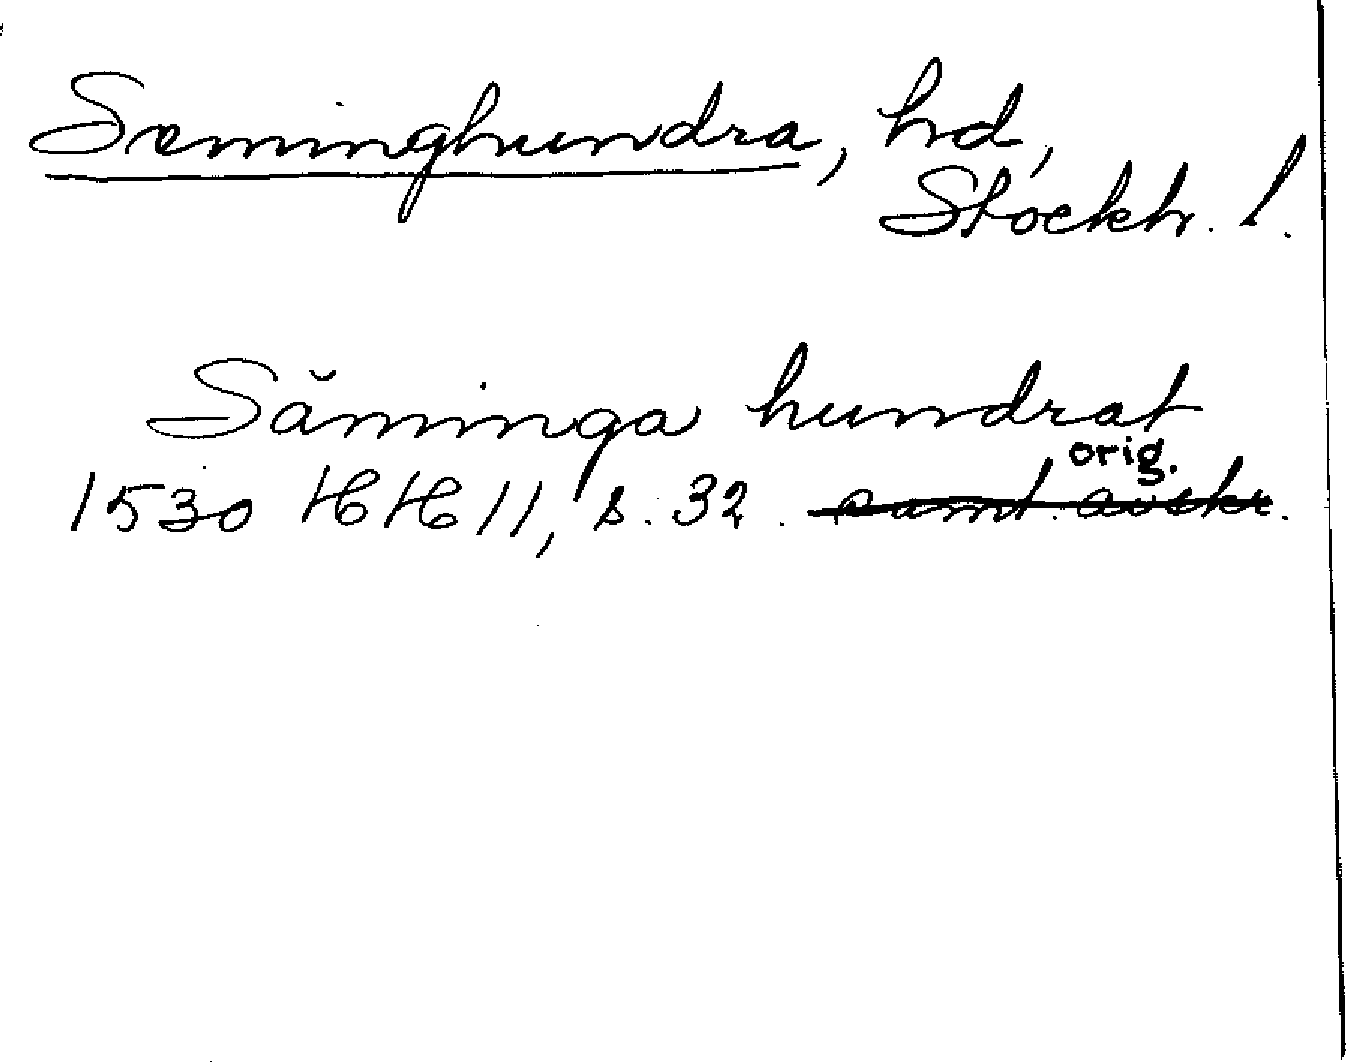 Seminghundra, hd,
Stockh. l.
Săminga hundrat
orig.
1530 HH 11, s. 32. samt. avskr.